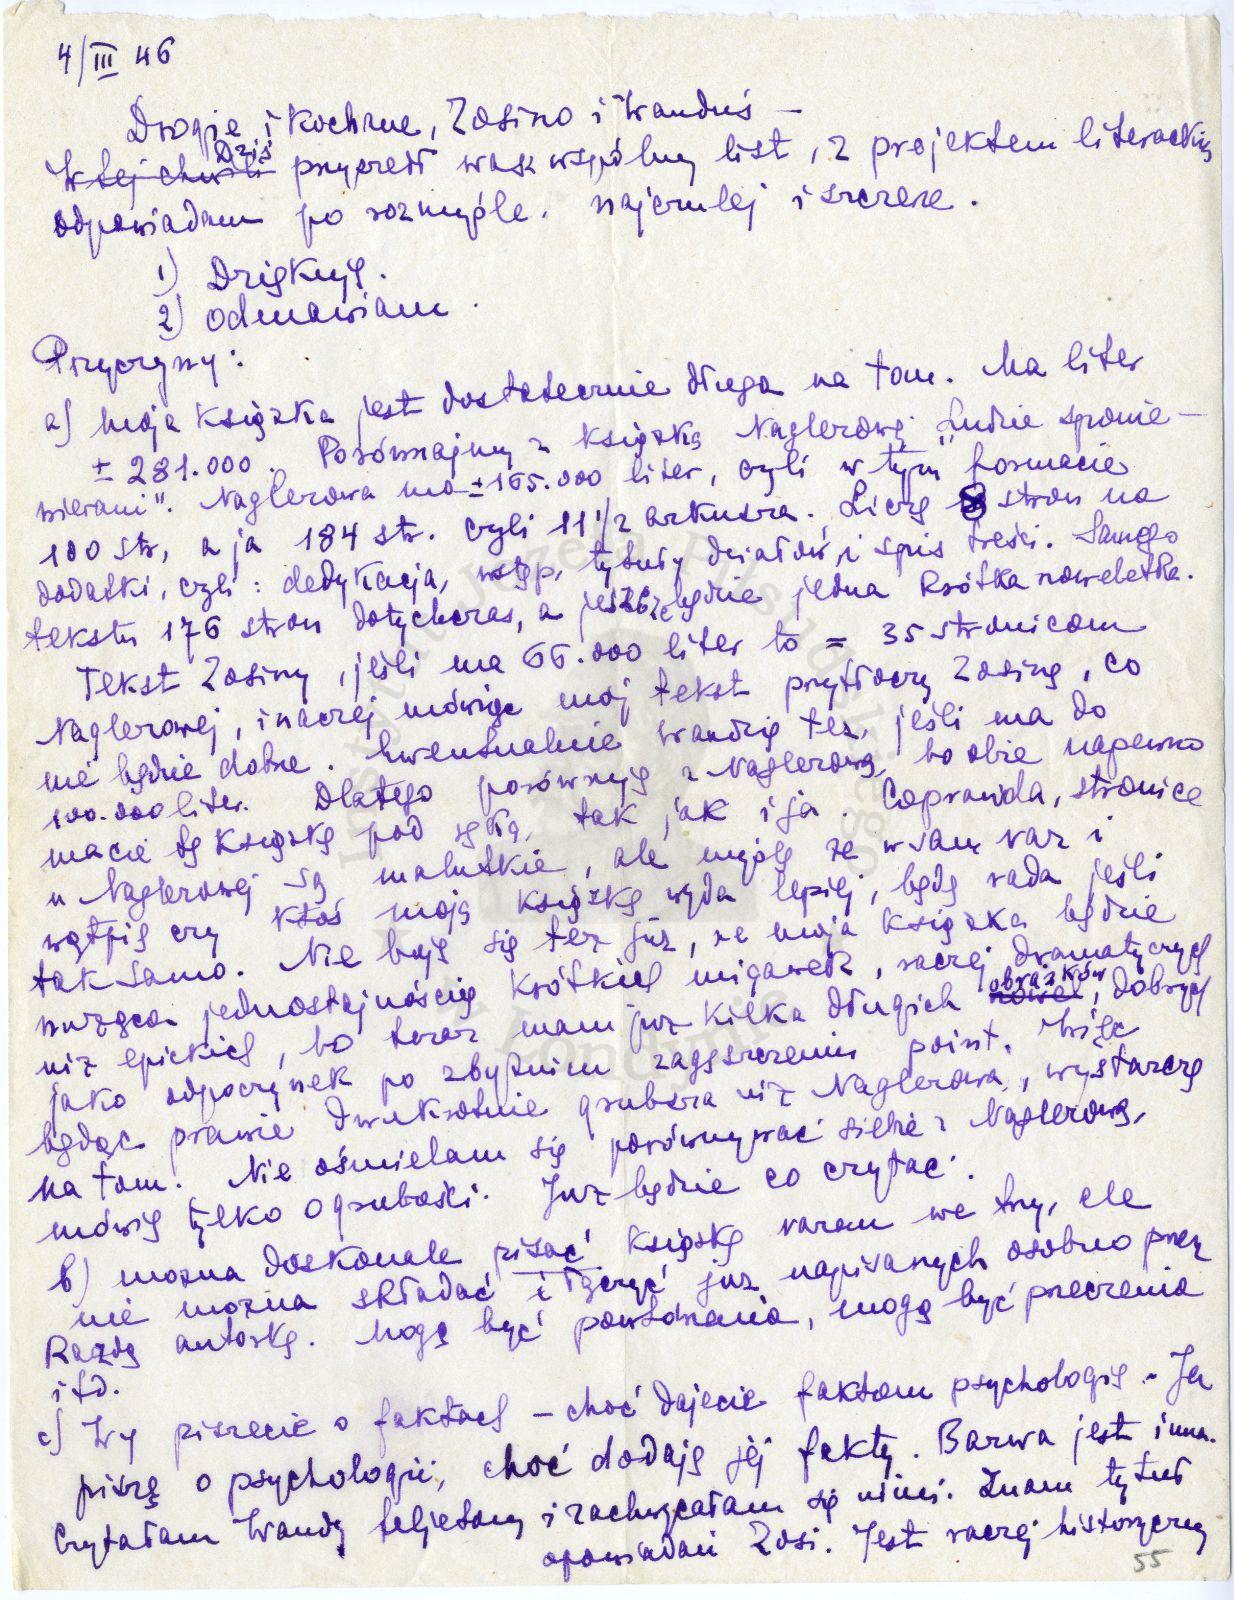 4/III 46
Drogie i kochane, Zosino i Wanduś –
W tej chwili Dziś przyszedł wasz wspólny list, z projektem literackim
odpowiadam po rozmyśle. Najczulej i szczerze.
1) Dziękuję.
2) Odmawiam.
Przyczyny:
a) Moja książka jest dostatecznie długa na tom. Ma liter
± 281.000. Porównajmy z książką Naglerowej „Ludzie sponie-
wierani". Naglerowa ma ± 165.000 liter, czyli w tym formacie
100 str, a ja 184 str. czyli 11 1/2 arkusza. Liczę 8 stron na
dodatki, czyli: dedykacja, wstęp, tytuły działów i spis treści. Samego
tekstu 176 stron dotychczas, a jeszcze będzie jedna krótka noweletka.
Tekst Zosiny, jeśli ma 66.000 liter to = 35 stronicom
Naglerowej, inaczej mówiąc mój tekst przytłoczy Zosinę, co
nie będzie dobre. Ewentualnie Wandzię też, jeśli ma do
100.000 liter. Dlatego porównuję z Naglerową, bo obie napewno
macie tę książkę pod ręką, tak jak i ja. Coprawda, stronice
u Naglerowej są malutkie, ale myślę że w sam raz i
wątpię czy ktoś moją książkę wyda lepiej, będę rada jeśli
tak samo. Nie boję się też już, że moja książka będzie
nużąca jednostajnością krótkich migawek, raczej dramatycznych
niż epickich, bo teraz mam już kilka długich nowel obrazków, dobrych
jako odpoczynek po zbytnim zagęszczeniu point. Więc
będąc prawie dwukrotnie grubsza niż Naglerowa, wystarczę
na tom. Nie ośmielam się porównywać siebie z Naglerową,
mówię tylko o grubości. Już będzie co czytać.
b) można doskonale pisać książkę razem we trzy, ale
nie można składać i łączyć już napisanych osobno przez
każdą autorkę. Mogą być powtórzenia, mogą być przeczenia
itd.
c) Wy piszecie o faktach – choć dajecie faktom psychologię – Ja
piszę o psychologii, choć dodaję jej fakty. Barwa jest inna.
Czytałam Wandy feljetony i zachwycałam się nimi. Znam tytuł
opowiadań Zosi. Jest raczej historyczny
55